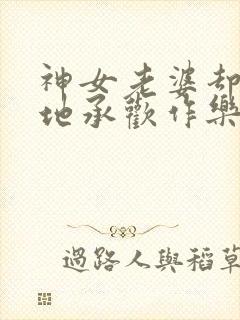 神女老婆却
地承歡作樂
過路人與稻草